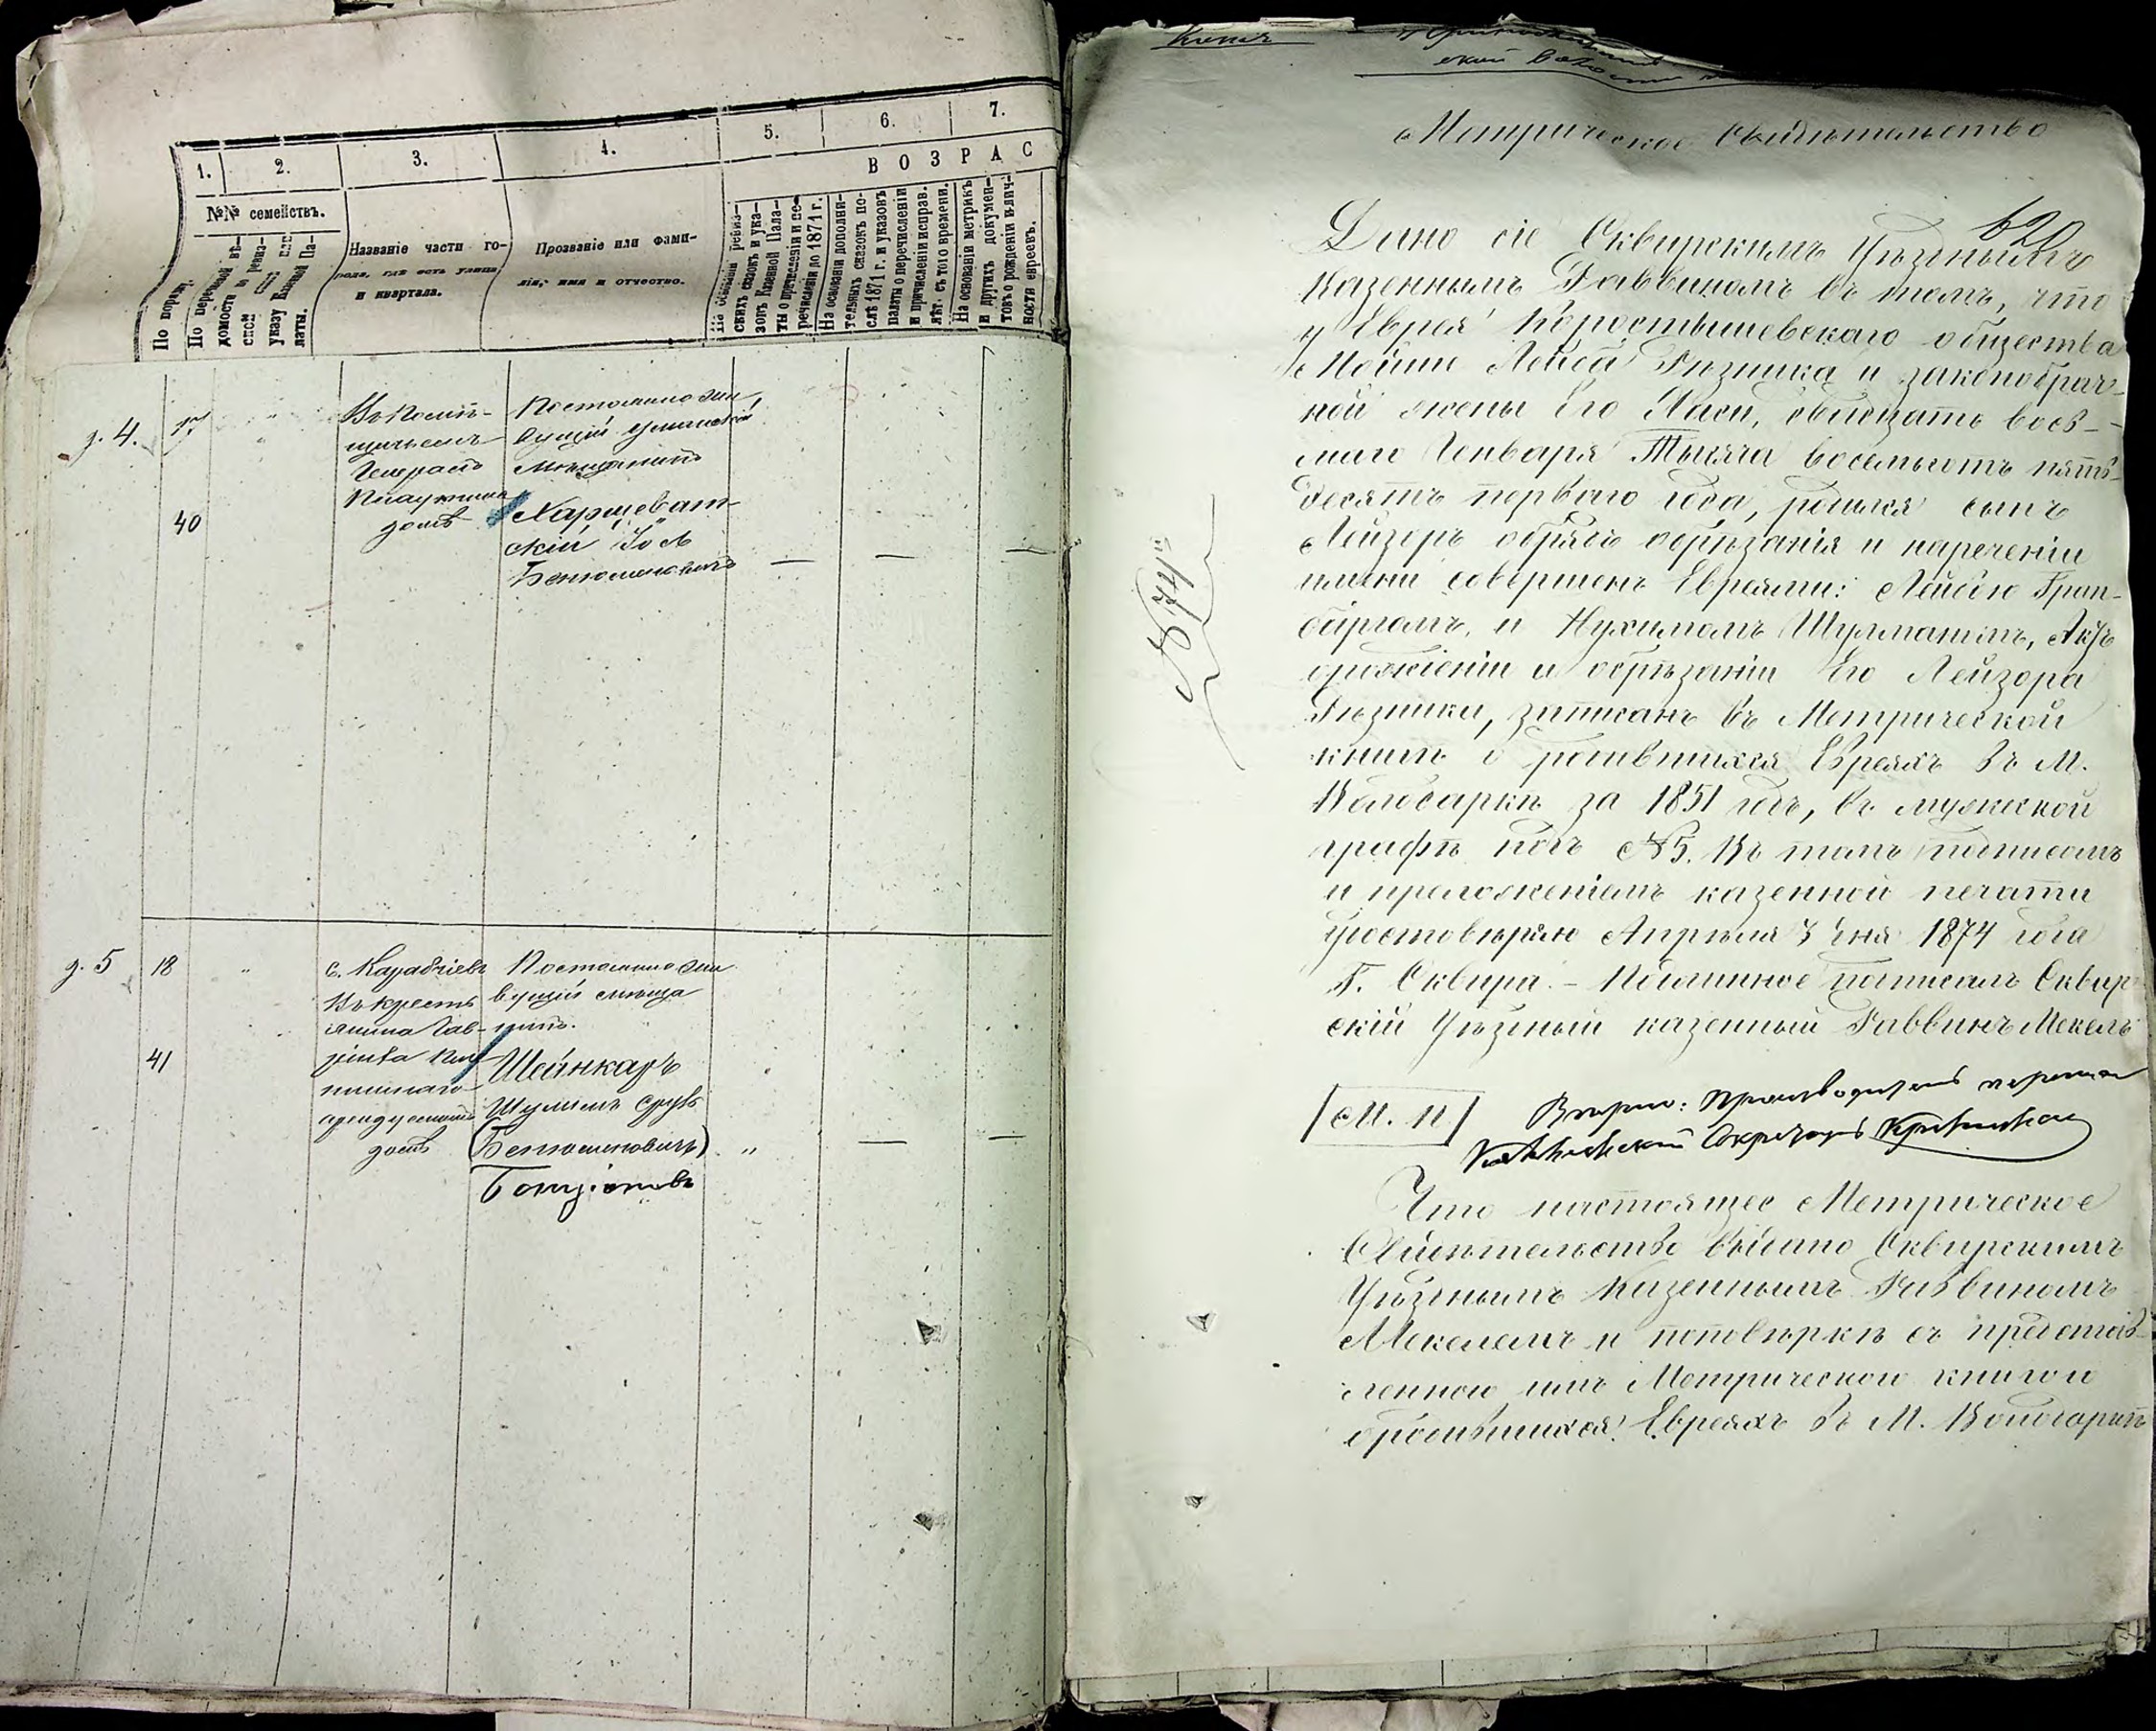 1.
2.
3.
4.
5.
6.
7.
ВОЗРАС
№№ семействъ.
По поряд.
По переписной вѣ-
домости
указу Казенной Па-
латы.
Названіе части го-
рода, гдѣ есть улица
и квартала.
Прозваніе или фами-
лія, имя и отчество.
На основаніи ревиз-
скихъ сказокъ и ука-
зовъ Казенной Пала-
ты о причисленіи и пе-
речисленіи до 1871 г.
На основаніи дополни-
тельныхъ сказокъ по-
слѣ 1871 г. и указовъ
палаты о перечисленіи
и причисленіи исправ.
лѣт. съ того времени.
На основаніи метрикъ
и другихъ докумен-
товъ о рожденіи и лич-
ности евреевъ.
д. 4.
17
40
Въ помѣ-
щичьемъ
домѣ
Постоянно жи-
вущій уманскій
мѣщанинъ
Харщеват-
скій Іось
Бенюминовичъ
д. 5
18
41
с. Карабчіевъ
Въ кресть
янина Гав-
арендуемомъ
домѣ
Постоянно жи
вущій мѣща
нинъ.
Шейнкаръ
Шулимъ Сруль
(Бенюминовичъ)
Бенціоновъ
Копія
ской волости
Метрическое Свидѣтельство
620
Дано сіе Сквирскимъ Уѣзднымъ
Казеннымъ Раввиномъ въ томъ, что
у Еврея Коростышевскаго общества
Мошки Лейба Рѣзника и законобрач-
ной жены его Хаси, двадцать вось-
маго Генваря Тысяча восемьсотъ пять-
десятъ перваго года, родился сынъ
Лейзоръ обрядъ обрѣзанія и нареченіи
имени совершенъ Евреями: Лейбою Грин-
баргомъ, и Нухимомъ Шулманомъ, Актъ
орожденіи и обрѣзаніи его Лейзора
Рѣзника, записанъ въ Метрической
книгѣ о родившихся Евреяхъ въ М.
Володаркѣ за 1851 годъ, въ мужеской
графѣ подъ №5. Въ томъ подписомъ
и преложеніемъ казенной печати
удостовѣряю Апрѣля 3 дня 1874 года
Г. Сквира. – Подлинное подписалъ Сквир
скій Уѣздный казенный Раввинъ Мекель
№ 74
[М. П]
Вѣрно:
Секретарь
Что настоящее Метрическое
Свидѣтельство выдано Сквирскимъ
Уѣзднымъ Казеннымъ Раввиномъ
Мекелемъ и поповѣркѣ съ представ-
ленною имъ Метрическою книгою
ородившихся Евреяхъ въ М. Володаркѣ